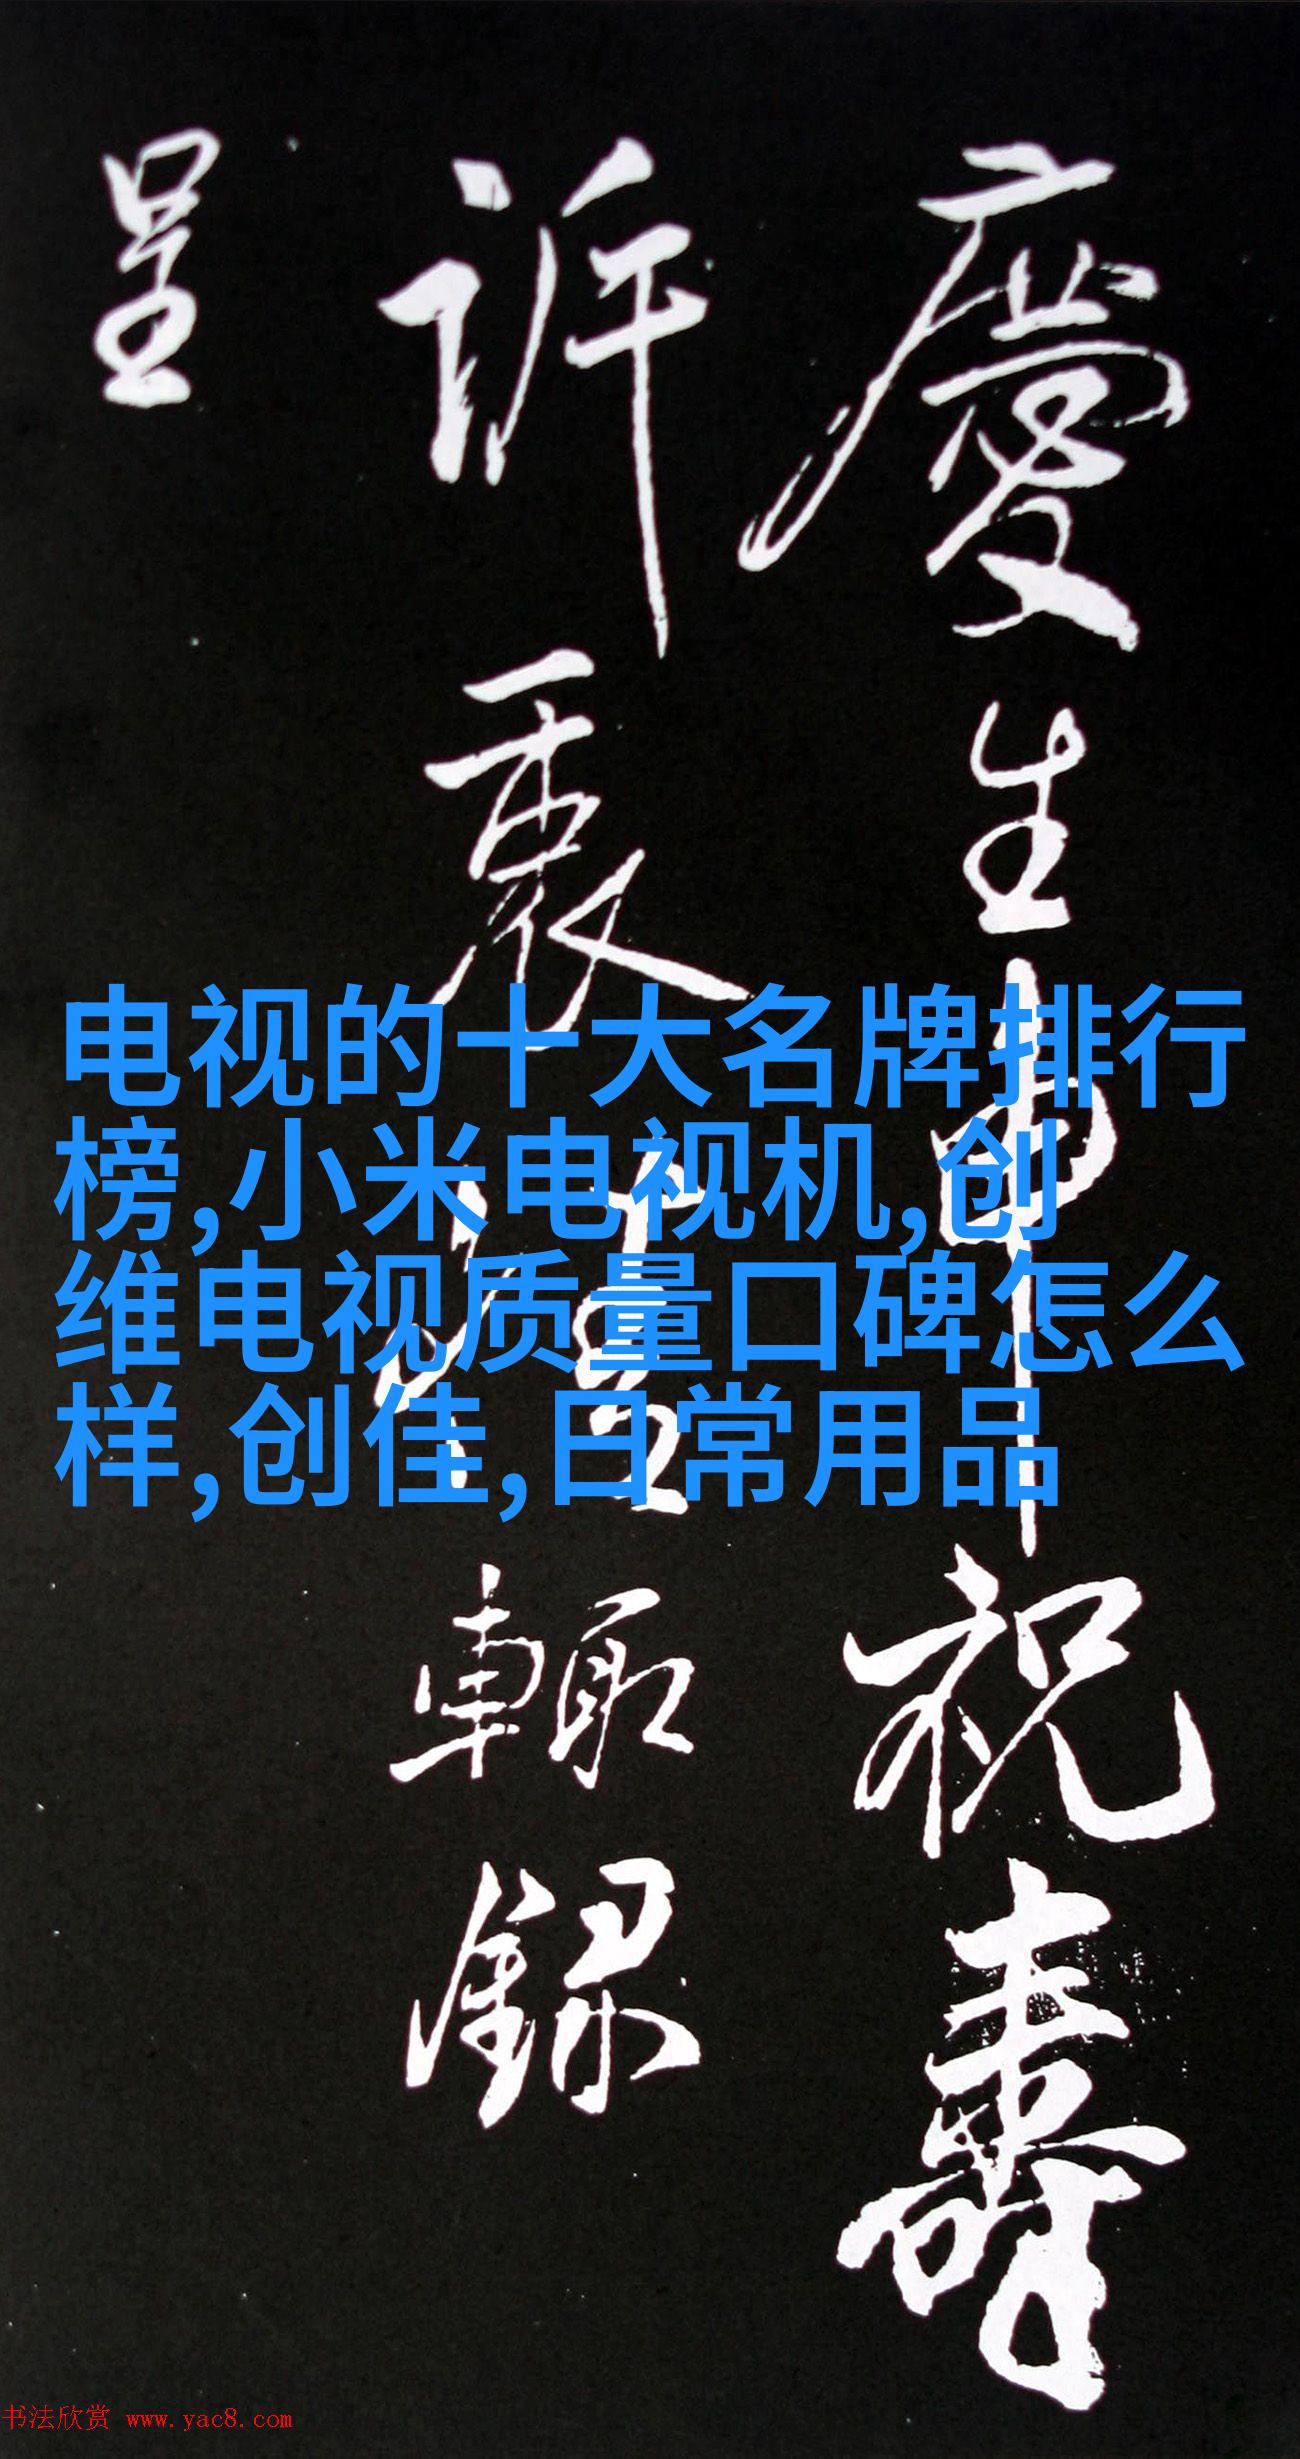 慶生申祝壽
衷輒録
呈
电视的十大名牌排行
榜,小米电视机,创
维电视质量口碑怎么
样,创佳,日常用品
书法欣赏 www.yac8.com